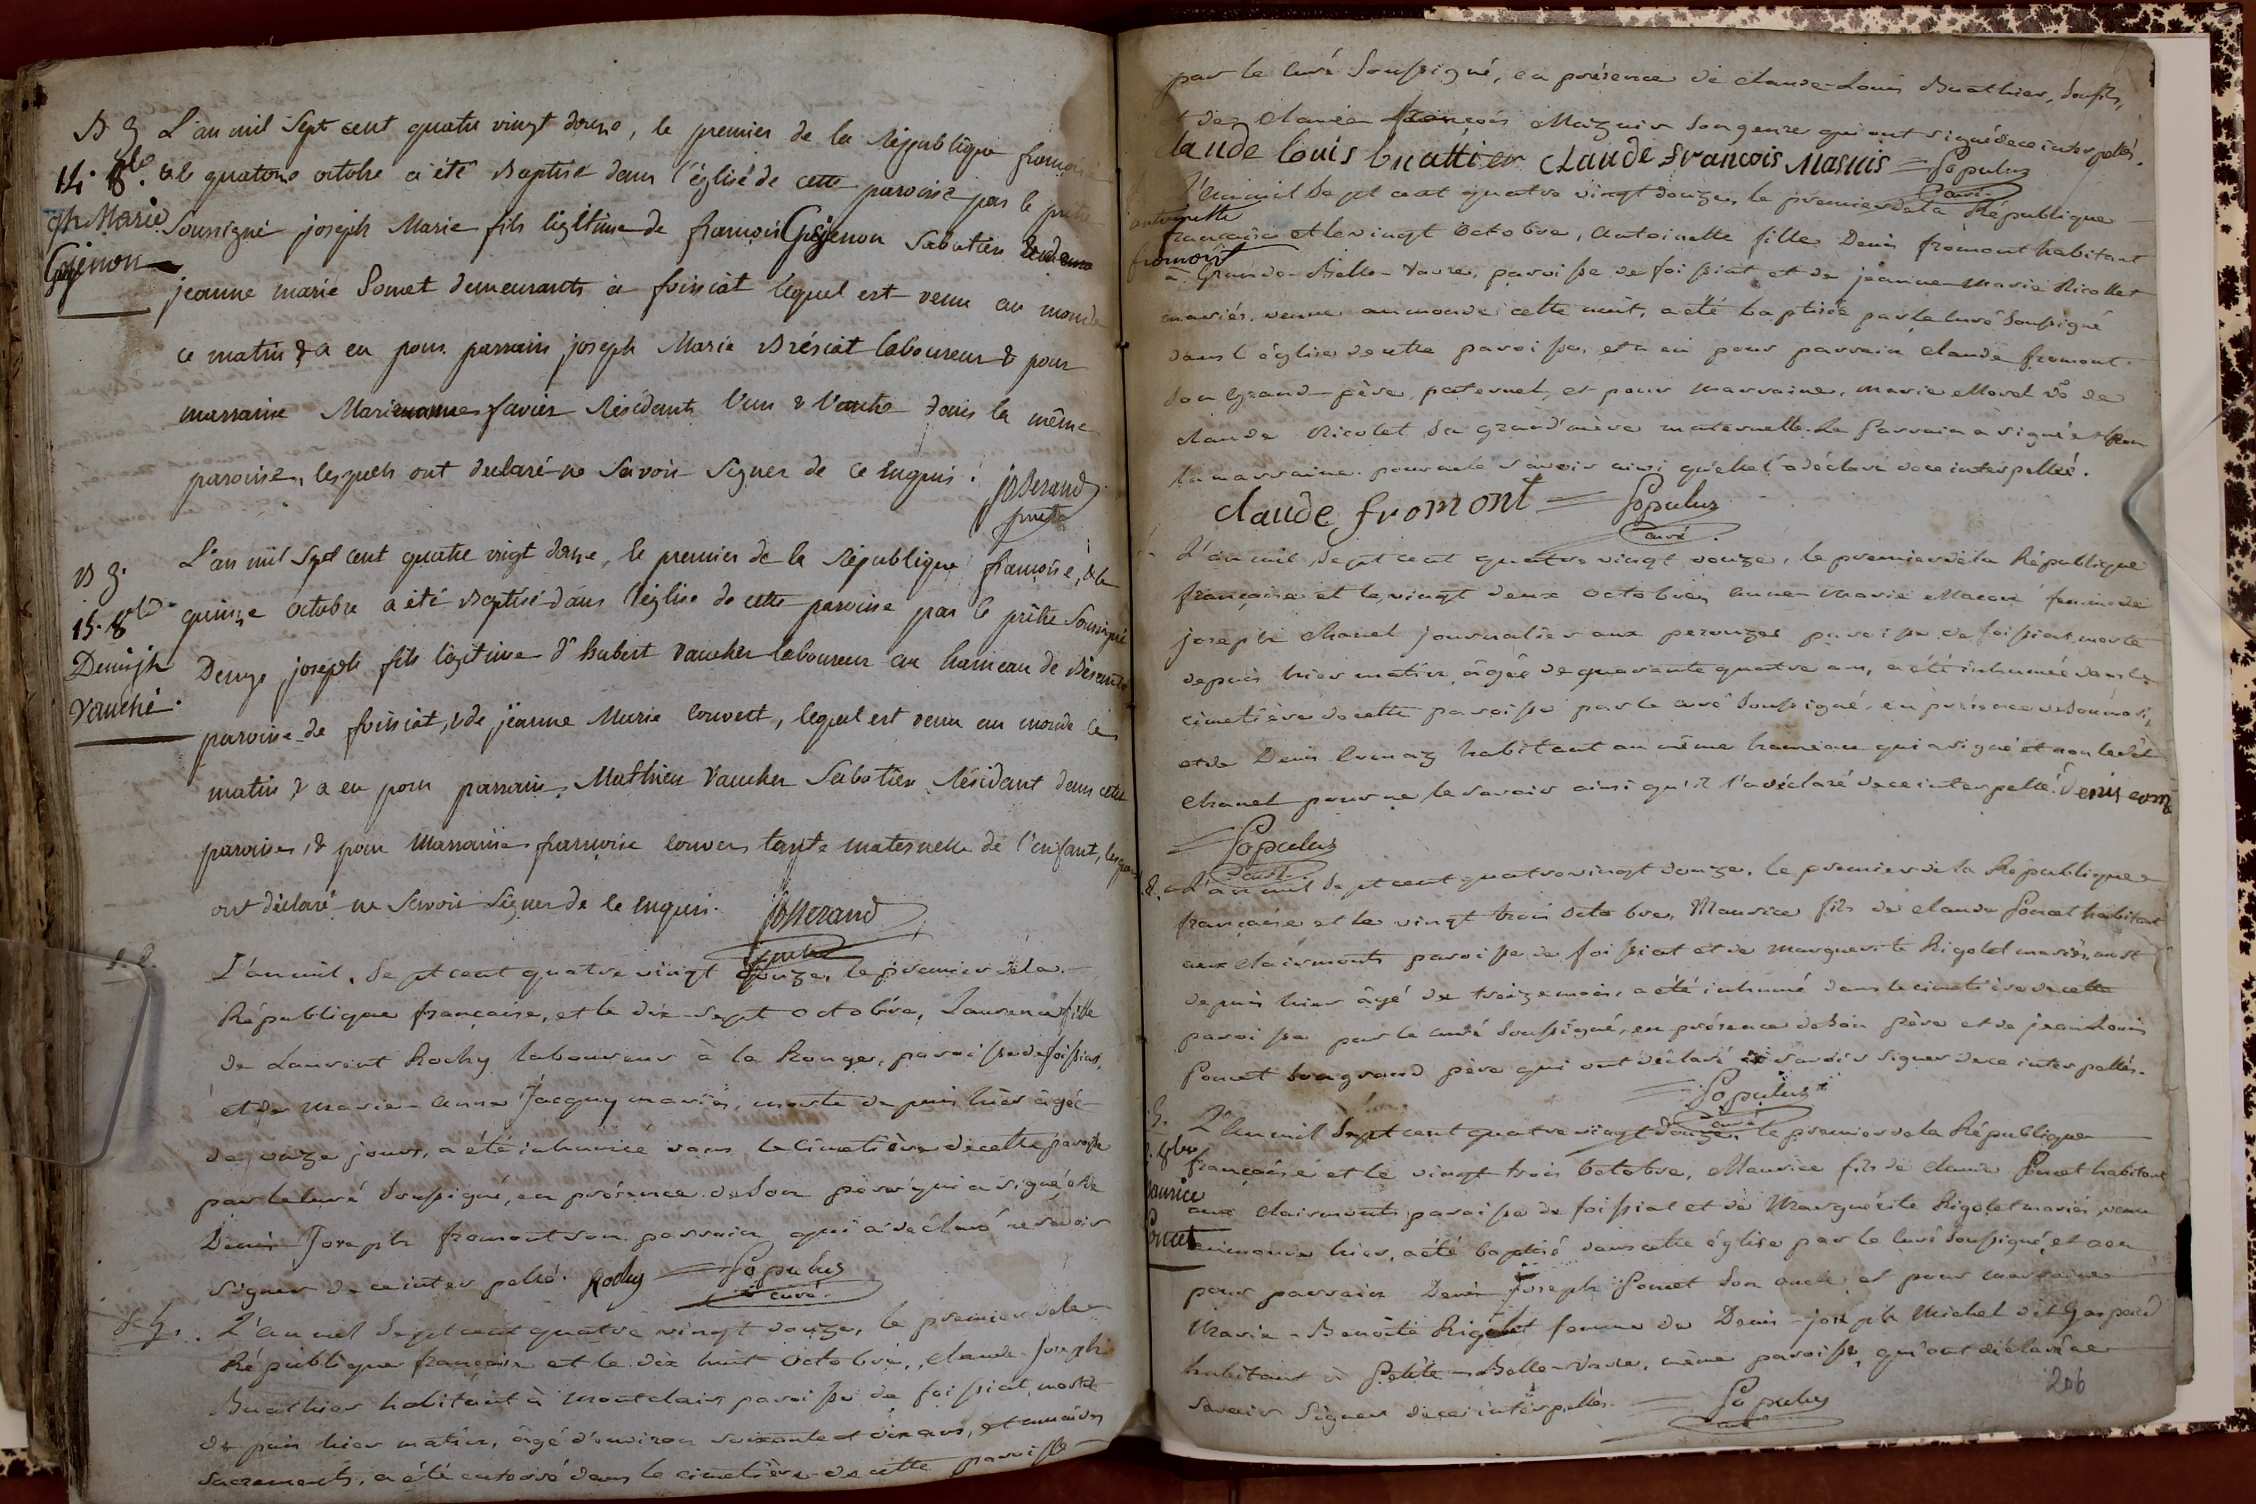 B g L'an mil sept cent quatre vingt douze, le premier de la République françoise
14. 8bre & le quatorze octobre a été Baptisé dans l'église de cette paroisse par le prêtre
jph Marie soussigné joseph Marie fils légitime de françois Gojenon Sabotier &
Gojenon
jeanne marie Pomet demeurants à foissiat lequel est venu au monde
ce matin & a eu pour parrain joseph Marie Bréciat laboureur & pour
marraine Mariemanne favier Résidants l'un & l'autre dans la même
paroisse, lesquels ont declaré ne savoir signer de ce Enquis. josserand
prêtre
B g. L'an mil sept cent quatre vingt douze, le premier de la République françoise, & le
15. 8bre quinze octobre a été Baptisé dans l'église de cette paroisse par le prêtre soussigné
Denijph Denys joseph fils légitime d'hubert Vaucher laboureur au hameau de
Vauché. paroisse de foissiat, & de jeanne Marie Convert, lequel est venu au monde ce
matin & a eu pour parrain Mathieu Vaucher Sabotier Résidant dans cette
paroisse, & pour Marraine françoise Convers tante maternelle de l'enfant, lesquels
ont déclaré ne savoir signer de ce Enquis. Josserand
prêtre
L'an mil sept cent quatre vingt douze, le premier de la
République française, et le dix-sept octobre, Laurence fille
de Laurent Rochy laboureur à la Rouges, paroisse de foissiat,
et de Marie-Anne Jacquy mariés, morte depuis hier âgée
de onze jours, a été inhumée dans le Cimetière de cette paroisse
par le curé soussigné, en présence de son père qui a signé, & de
Denis Joseph fromont son parrain qui a déclaré ne savoir
signer de ce interpellé. Rochy = Populus
curé.
L'an mil sept cent quatre vingt douze, le premier de la
République française et le dix huit octobre, Claude-Joseph
Buathier habitant à Montclair paroisse de foissiat, mort
depuis hier matin, âgé d'environ soixante et dix ans, et muni des
sacrements, a été enterré dans le cimetière de cette paroisse
par le curé soussigné, en présence de claude-Louis Buathier, son fils,
et de Claude françois Masuir son gendre qui ont signé de ce interpellés.
claude louis buattier claude francois Masuis = Populus
curé
L'an mil sept cent quatre vingt douze, le premier de la République
antoinette
fromont
française et le vingt octobre, antoinette fille Denis fromont habitant
à Grande-Belle-Vavre, paroisse de foissiat et de jeanne-marie Ricollet
mariés, venue au monde cette nuit, a été baptisée par le curé soussigné
dans l'église de cette paroisse, et a eu pour parrain claude fromont
son Grand-père paternel, et pour marraine, marie Morel ve de
claude Ricolet sa grand'mère maternelle. Le parrain a signé & non
la marraine pour ne le savoir ainsi qu'elle l'a déclaré de ce interpellée.
claude fromont = Populus
curé.
L'an mil sept cent quatre vingt douze, le premier de la République
française et le vingt deux octobre, anne-marie Macon femme de
joseph Chanel journalier aux perouzes paroisse de foissiat, morte
depuis hier matin, âgée de quarante quatre ans, a été inhumée dans le
cimetière de cette paroisse par le curé soussigné, en présence de son mari,
et de Denis habitant au même hameau qui a signé et non ledit
Chanel pour ne le savoir ainsi qu'il l'a déclaré de ce interpellé. Denis
= Populus
curé.
L'an mil sept cent quatre vingt douze, le premier de la République
française et le vingt trois octobre, Maurice fils de claude Poncet habitant
aux clairmonts paroisse de foissiat et de Marguerite Rigolet mariés, mort
depuis hier âgé de treize mois, a été inhumé dans le cimetière de cette
paroisse par le curé soussigné, en présence de son père et de jean Louis
Poncet son grand père qui ont déclaré ne savoir signer de ce interpellés.
= Populus
curé
L'an mil sept cent quatre vingt douze, le premier de la République
8bre française et le vingt trois octobre, Maurice fils de claude Poncet habitant
Maurice aux clairmonts paroisse de foissiat et de Marguerite Rigolet mariés, venu
Poncet au monde hier, a été baptisé dans cette église par le curé soussigné, et a eu
pour parrain Denis-Joseph Poncet son oncle et pour marraine
Marie-Benoîte Rigolet femme de Denis-joseph Michel dit Gaspard
habitant à Petite-Belle-Vavre, même paroisse, qui ont déclaré ne
savoir signer de ce interpellés. = Populus
curé
206